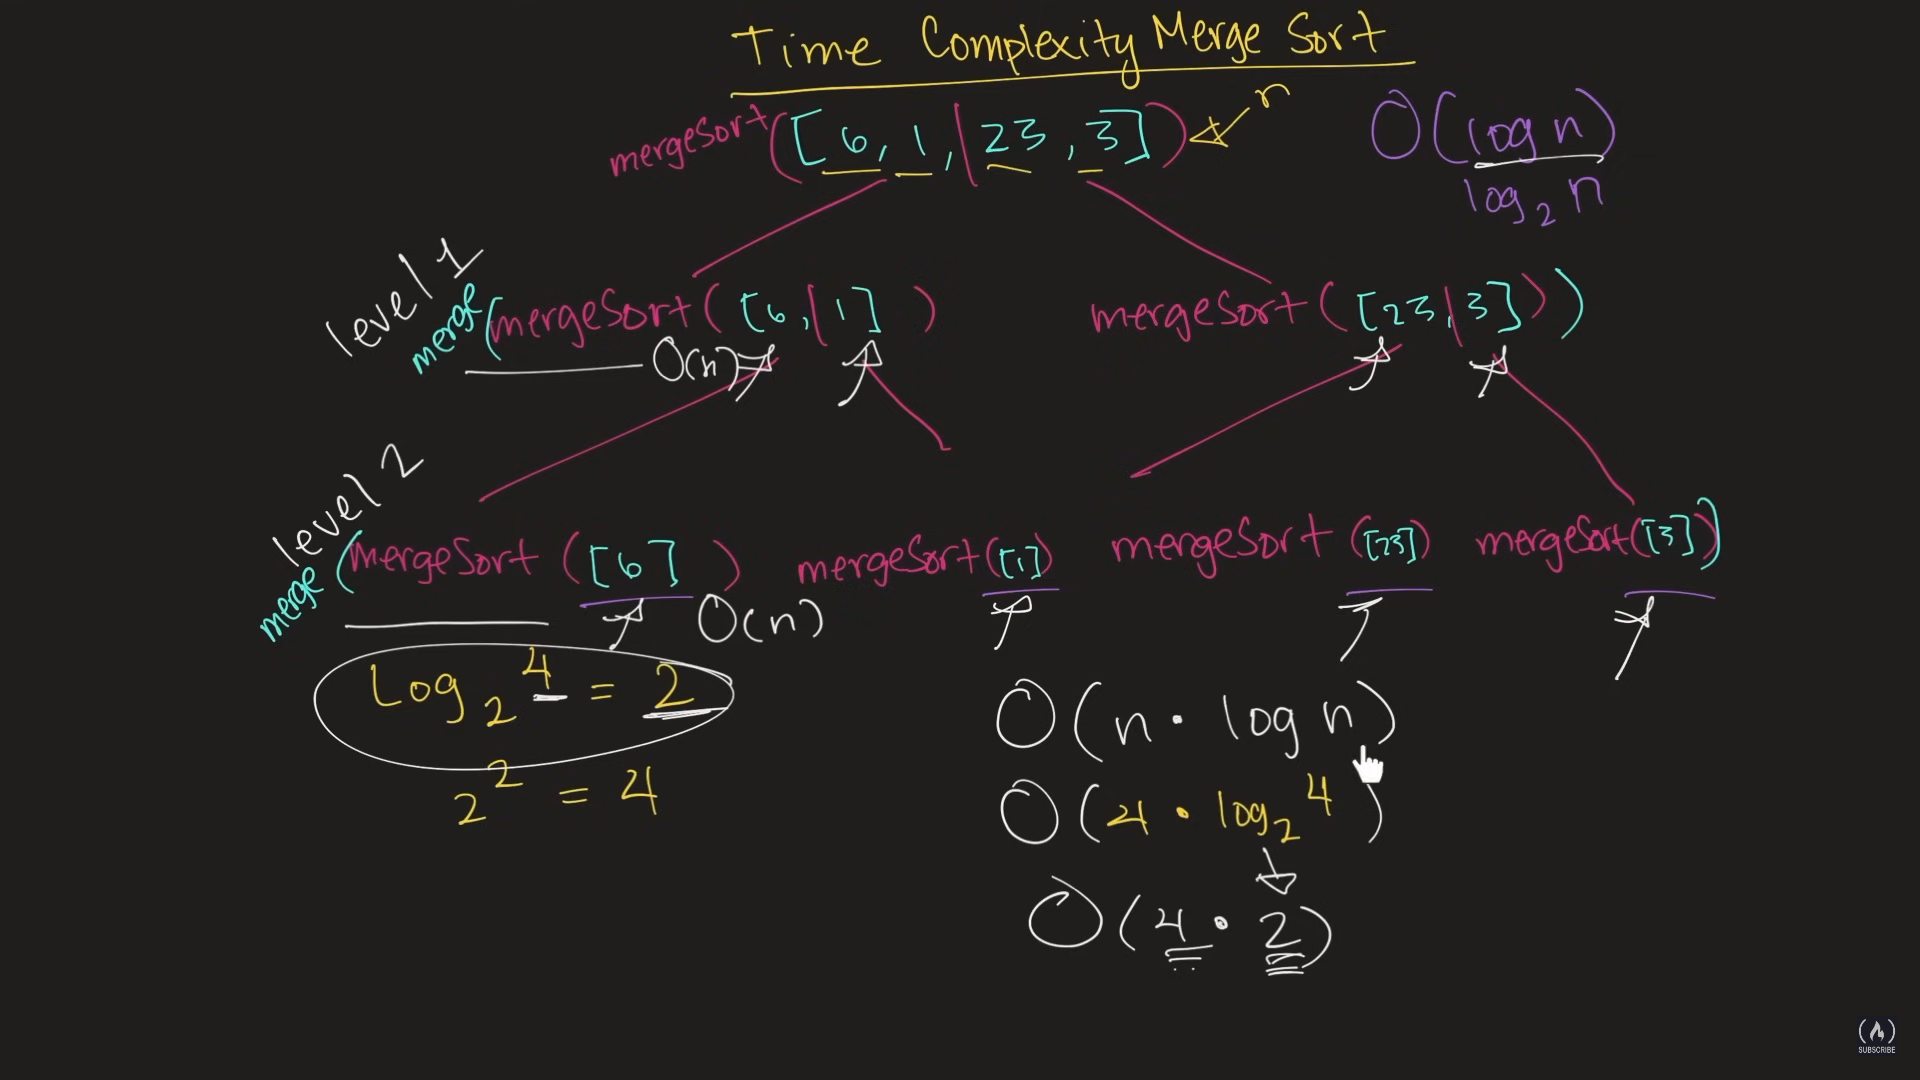 Time Complexity Merge Sort
mergeSort([6, 1, | 23, 3]) n
O(log n)
log₂ n
level 1
merge(mergeSort([6, | 1]) mergeSort([23 | 3]))
O(n)
level 2
merge(mergeSort([6]) mergeSort([1]) mergeSort([23]) mergeSort([3]))
O(n)
Log₂ 4 = 2
2² = 4
O(n · log n)
O(4 · log₂ 4)
O(4 · 2)
SUBSCRIBE